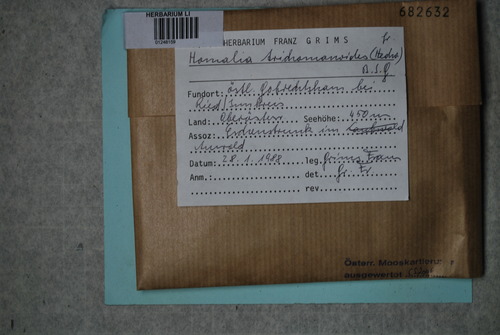 682632
HERBARIUM LI
HERBARIUM FRANZ GRIMS fr.
Homalia trichomanoides (Hedw.)
B.S.G
Fundort: östl. bei
Ried/Innkreis
Land: Oberösterr. Seehöhe: 450m
Assoz: Erlenstrunk im
Auwald
Datum: 28.1.1988 leg. Grims Franz
Anm.: det. Gr. Fr.
rev.
Österr. Mooskartierung
ausgewertet